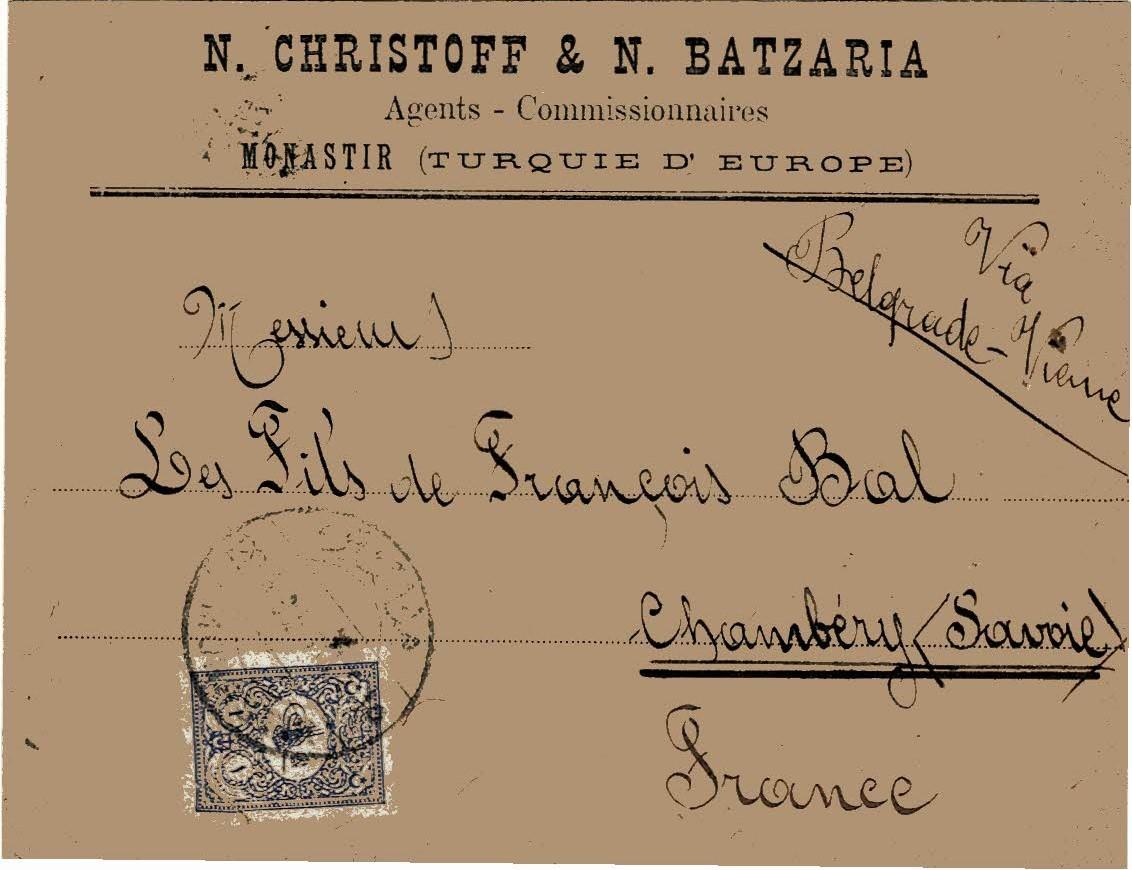 N. CHRISTOFF & N. BATZARIA
Agents - Commissionnaires
MONASTIR (TURQUIE D' EUROPE)
Via
Belgrade - Vienne
Messieurs
Les Fils de François Bal
Chambéry (Savoie)
France
١
١